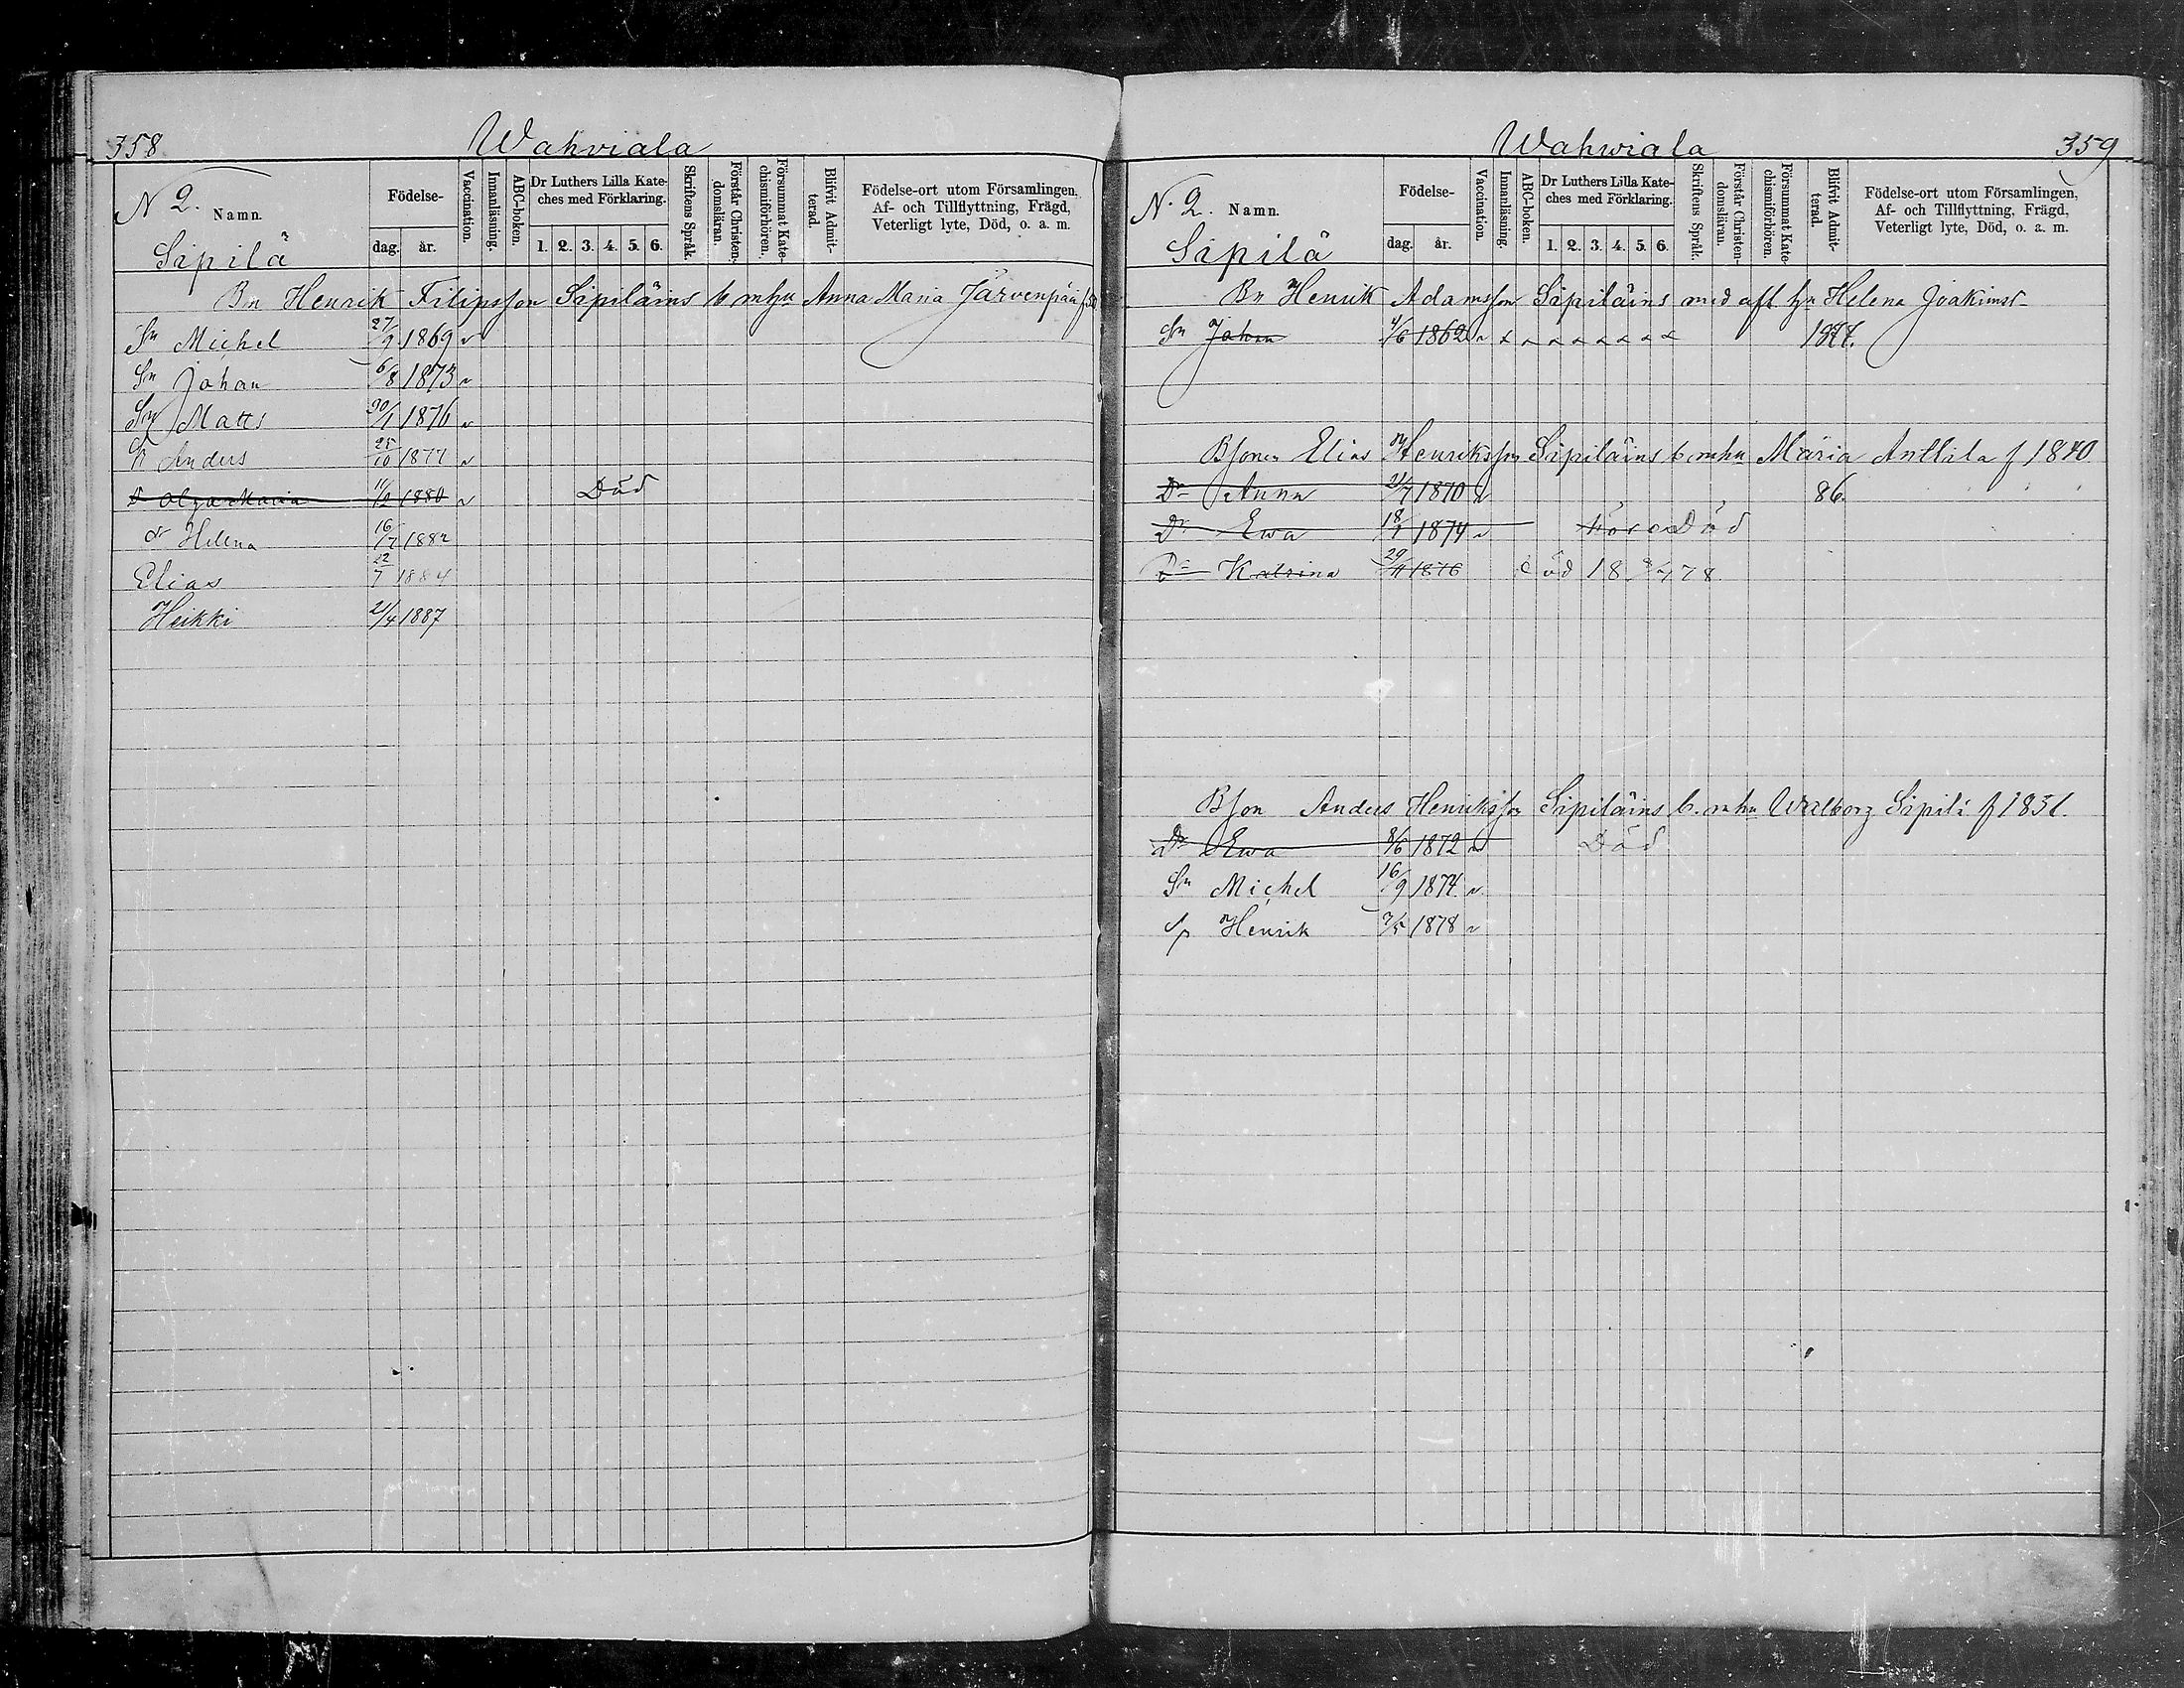 358
Wahviala
N 2.
Namn.
Födelse-
dag. år.
Vaccination.
Innanläsning.
ABC-boken.
Dr Luthers Lilla Kate-
ches med Förklaring.
1. 2. 3. 4. 5. 6.
Skriftens Språk.
Förstår Christen-
domsläran.
Försummat Kate-
chismiförhören.
Blifvit Admit-
terad.
Födelse-ort utom Församlingen,
Af- och Tillflyttning, Frägd,
Veterligt lyte, Död, o. a. m.
Sipilä
Bn Henrik Filipsson Sipiläins b mhu Anna Maria Järvenpää
Sn Michel 27/9 1869 v
Sn Johan 6/8 1873 v
Sn Matts 30/1 1876 v
Sn Anders 25/10 1877 v
D Olga Maria 11/2 1880 v Död
dr Helena 16/7 1882
Elias 22/7 1884
Heikki 21/4 1887
Wahwiala
359
N. 2.
Namn.
Födelse-
dag. år.
Vaccination.
Innanläsning.
ABC-boken.
Dr Luthers Lilla Kate-
ches med Förklaring.
1. 2. 3. 4. 5. 6.
Skriftens Språk.
Förstår Christen-
domsläran.
Försummat Kate-
chismiförhören.
Blifvit Admit-
terad.
Födelse-ort utom Församlingen,
Af- och Tillflyttning, Frägd,
Veterligt lyte, Död, o. a. m.
Sipilä
Bn Henrik Adamsson Sipiläins med afl hu Helena Joakimsr
Sn Johan 4/6 1862 v
Bsonen Elias Henriksson Sipiläins b mhu Maria Anttila f 1840
Dr Anna 21/7 1870 v 86.
Dr Ewa 18/1 1874 v Död
Dr Katrina 29/11 1876 död 18 78
Bson Anders Henriksson Sipiläins b. mhu Walborg Sipilä f 1851.
Dr Ewa 8/6 1872 v Död
Sn Michel 16/9 1874 v
Sn Henrik 7/5 1878 v